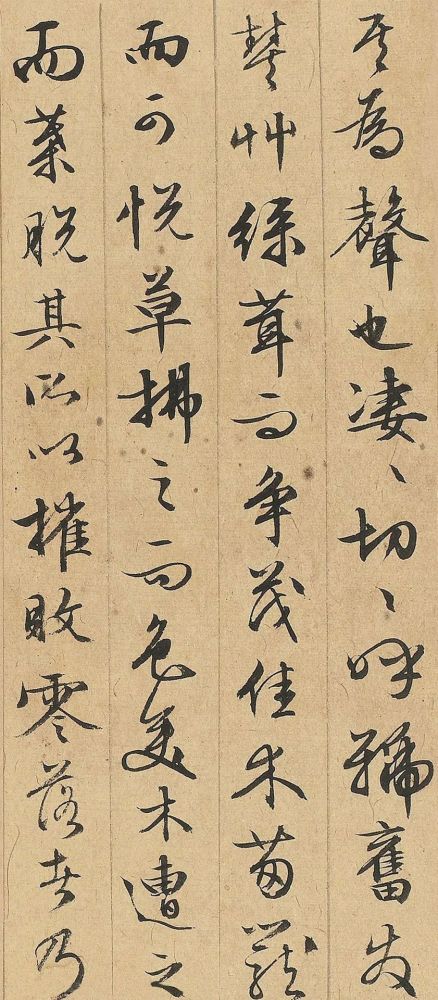 其為聲也凄〻切〻呼號奮發
豐艸綠茸而爭茂佳木蔥蘢
而可悅草拂之而色變木遭之
而葉脫其所以摧敗零落者乃